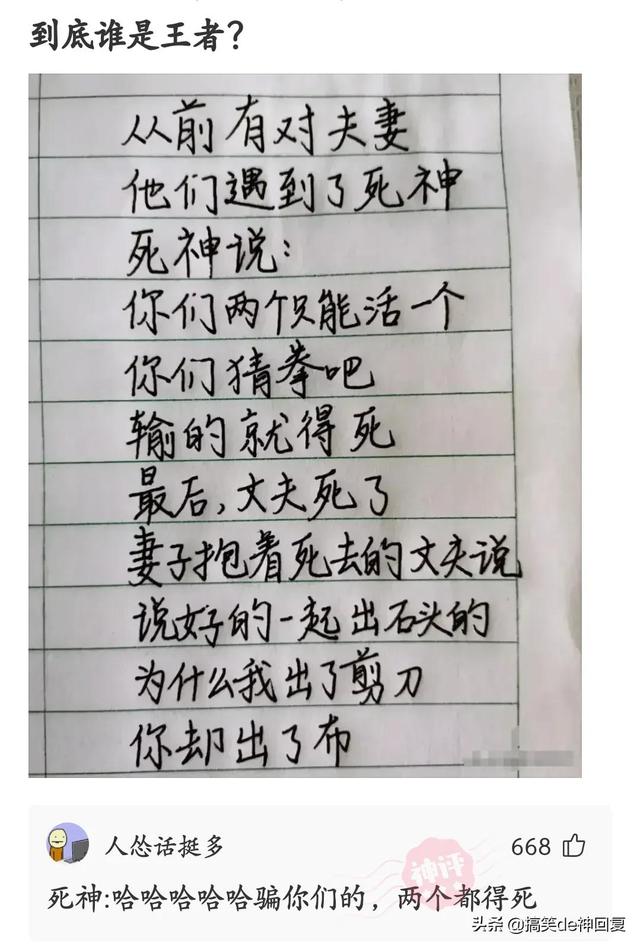 到底谁是王者?
从前有对夫妻
他们遇到了死神
死神说:
你们两个只能活一个
你们猜拳吧
输的就得死
最后,丈夫死了
妻子抱着死去的丈夫说
说好的一起出石头的
为什么我出了剪刀
你却出了布
人怂话挺多
668
神评
死神:哈哈哈哈哈骗你们的，两个都得死
头条 @搞笑de神回复